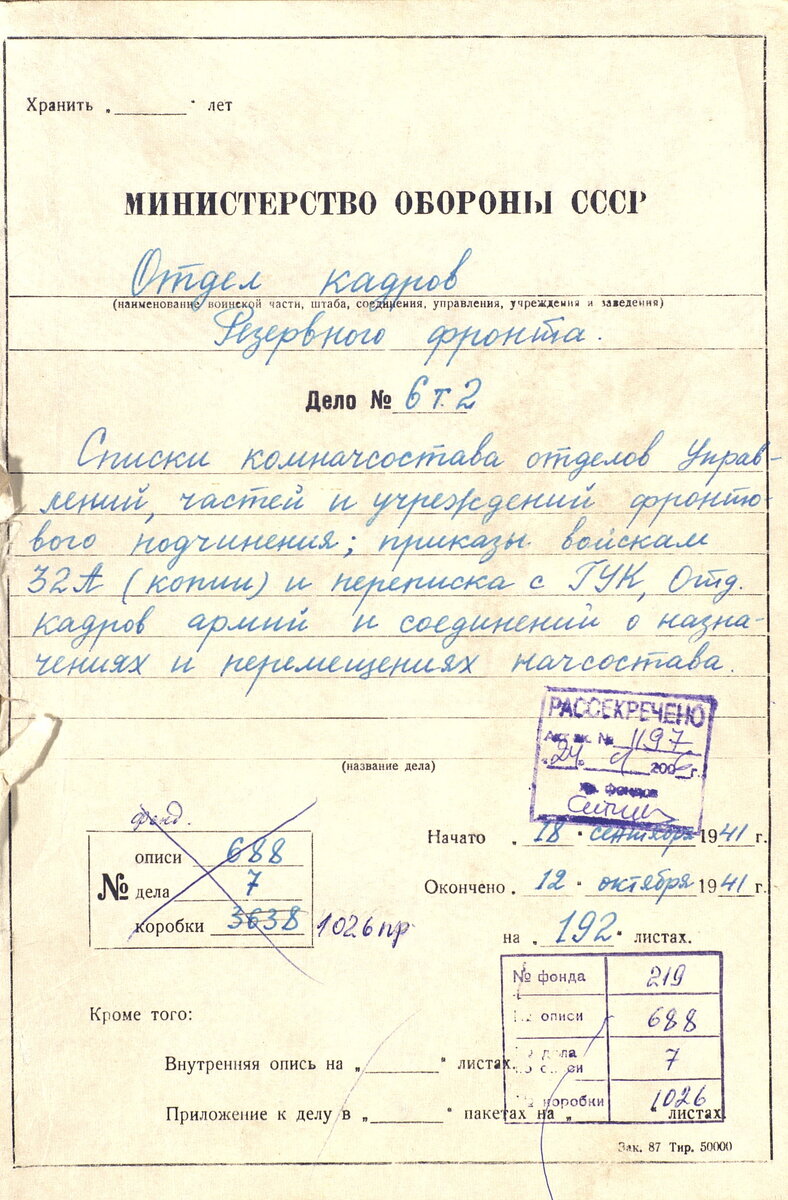 Хранить „ " лет
МИНИСТЕРСТВО ОБОРОНЫ СССР
Отдел кадров
(наименование воинской части, штаба, соединения, управления, учреждения и заведения)
Резервного фронта.
Дело № 6 т. 2
Списки комначсостава отделов Управ-
лений, частей и учреждений фронто-
вого подчинения; приказы войскам
32А (копии) и переписка с ГУК, Отд.
кадров армий и соединений о назна-
чениях и перемещениях начсостава.
РАССЕКРЕЧЕНО
Акт эк. № 1197
"24" 200 г.
хр. фондов
(название дела)
фонд.
№
описи 688
дела 7
коробки 3638 1026 пр
Начато „18" сентября 1941 г.
Окончено „12" октября 1941 г.
на „192" листах.
№ фонда 219
№ описи 688
№ дела по описи 7
№ коробки 1026
Кроме того:
Внутренняя опись на „ " листах.
Приложение к делу в „ " пакетах на „ " листах.
Зак. 87 Тир. 50000